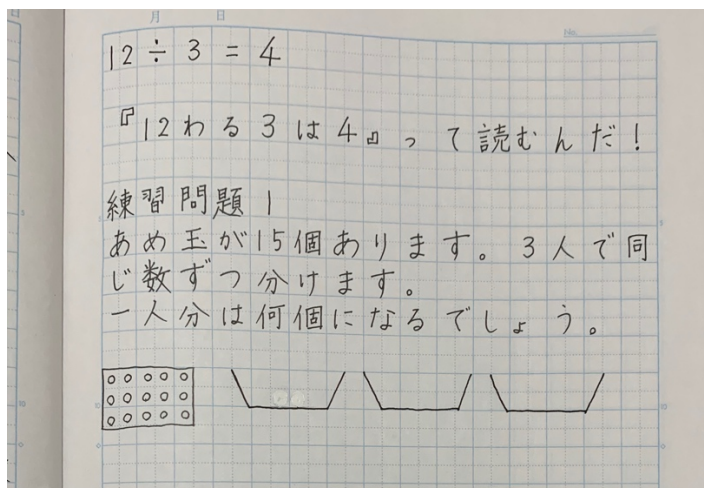 月 日
No.
12÷3=4
『12わる3は4』って読むんだ!
練習問題1
あめ玉が15個あります。3人で同
じ数ずつ分けます。
一人分は何個になるでしょう。